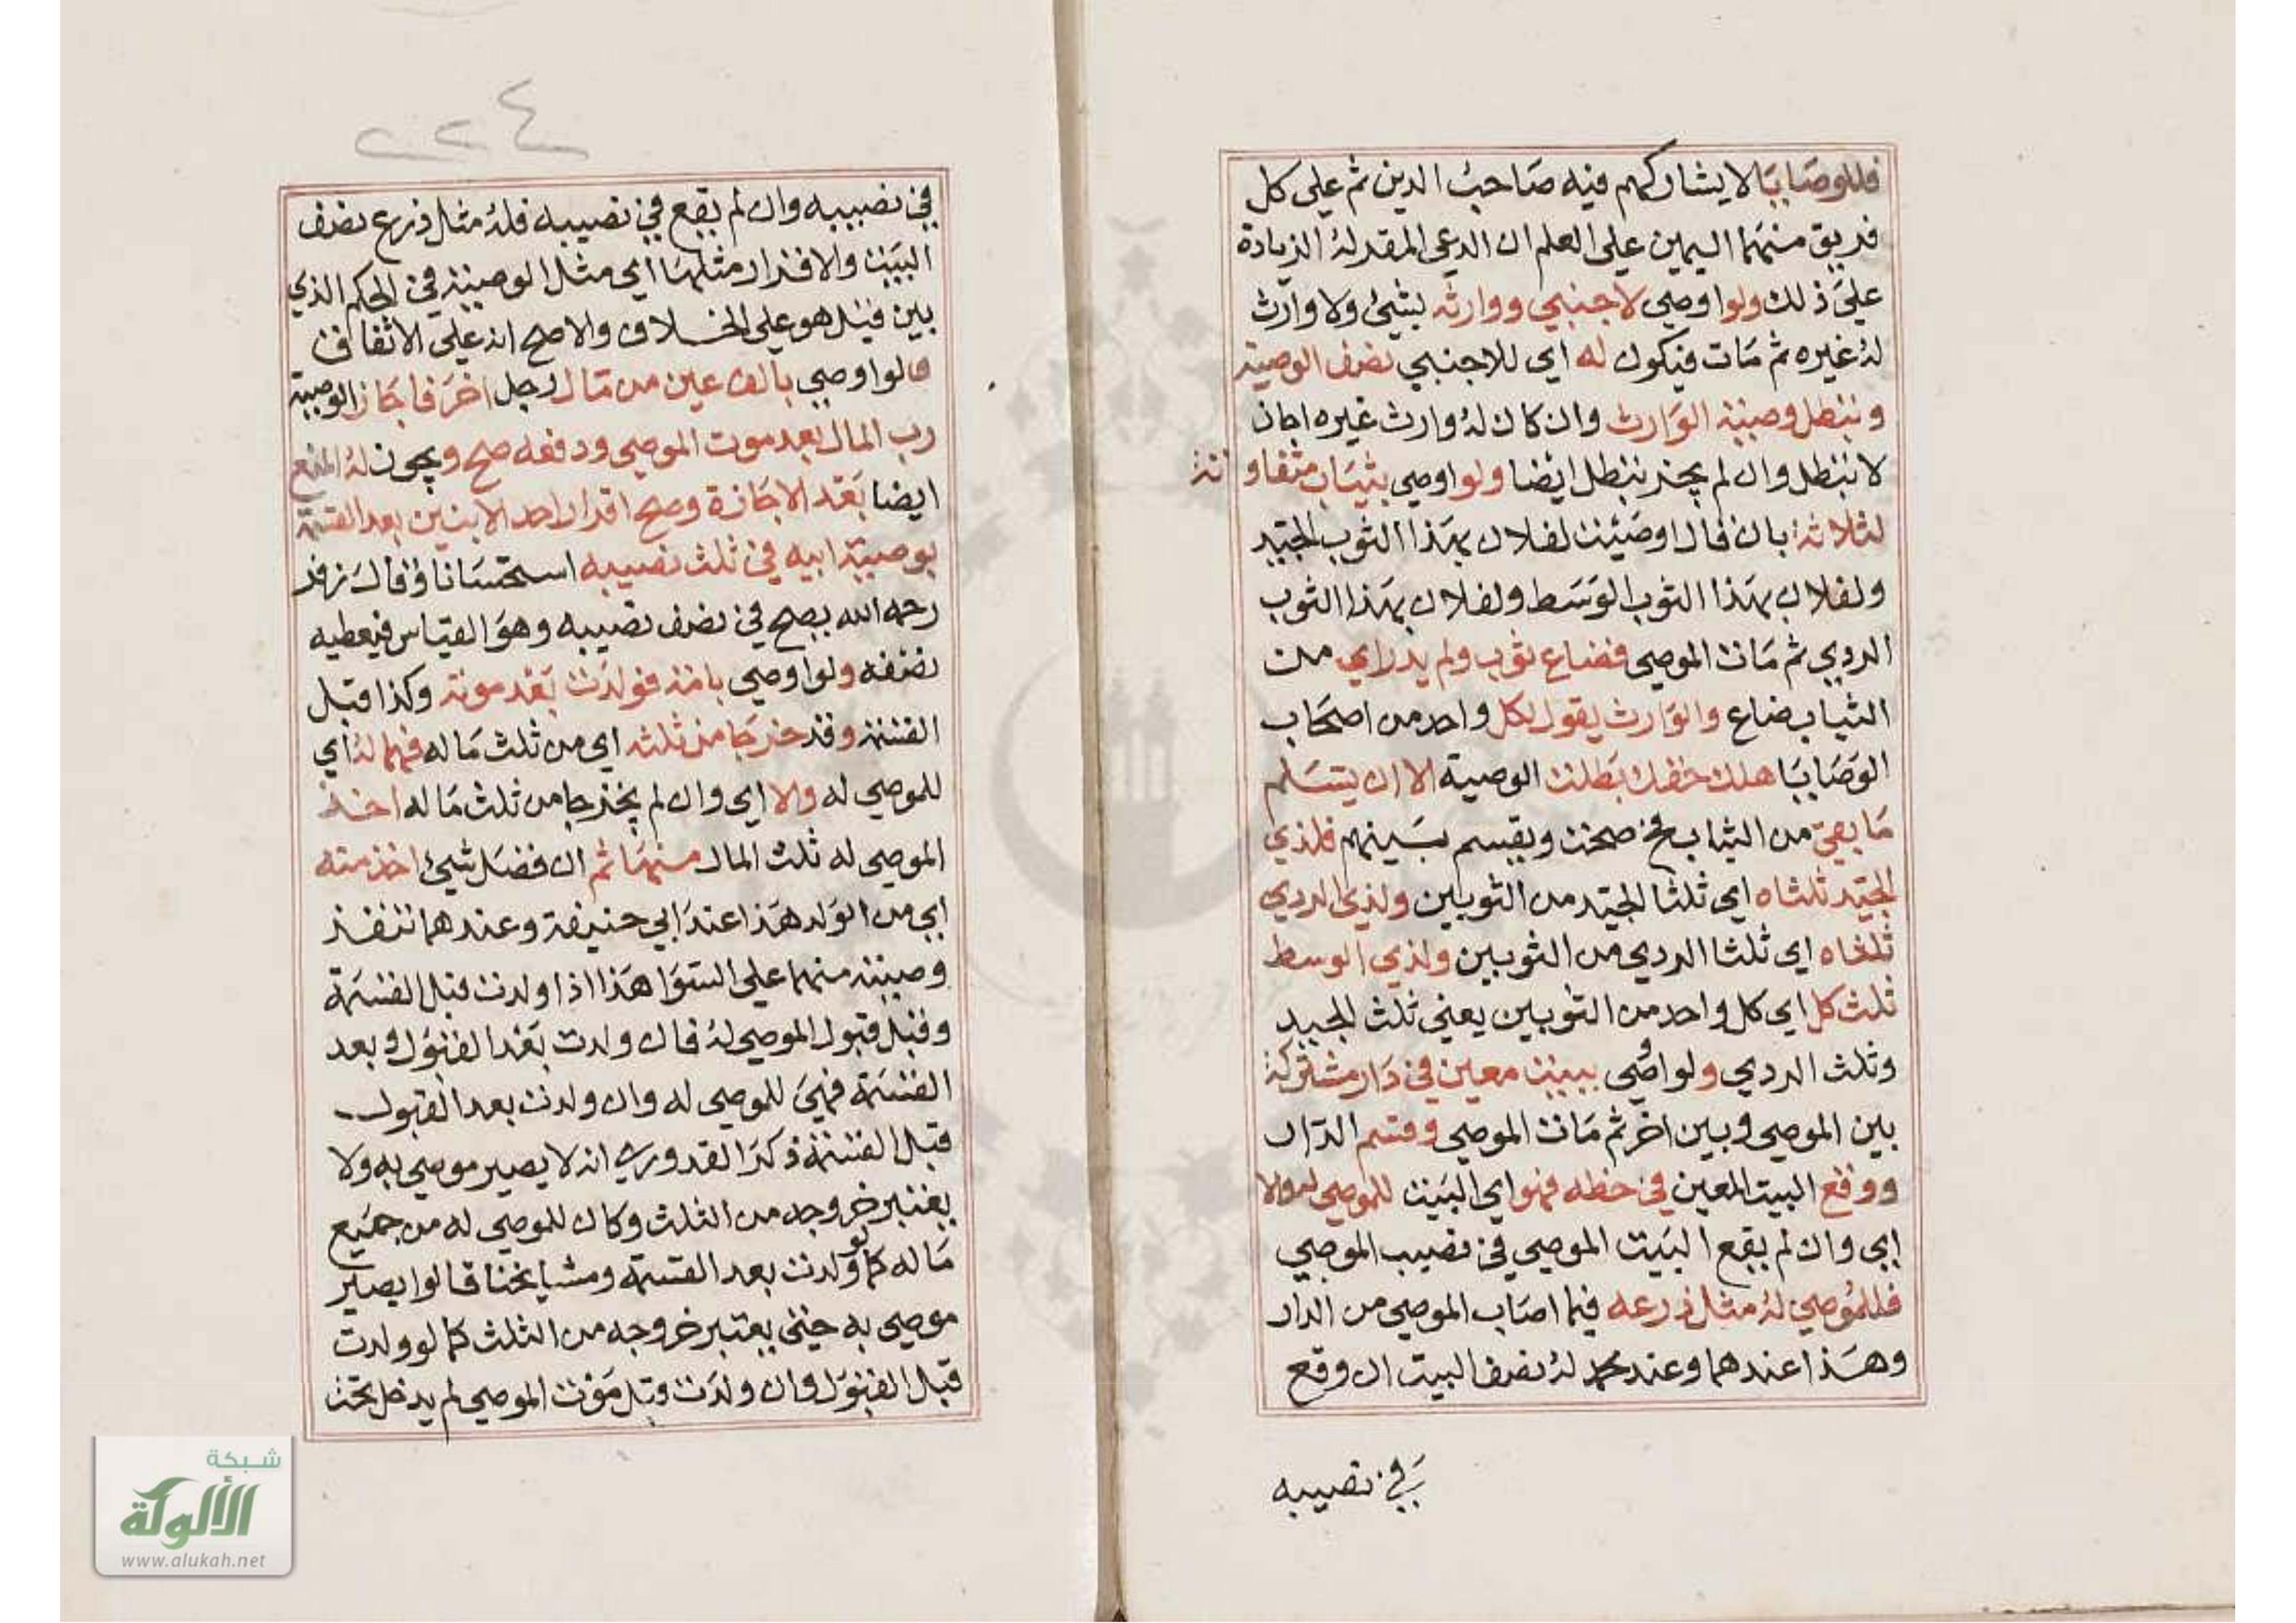 فللوصايا لا يشاركهم فيه صاحب الدين ثم على كل
فريق منهما اليمين على العلم ان الدعي المقر له الزيادة
على ذلك ولو اوصي لاجنبي ووارثه بشئ ولا وارث
له غيره ثم مات فيكون له اي للاجنبي نصف الوصية
وتبطل وصيته الوارث وان كان له وارث غيره اجاز
لا تبطل وان لم يجز تبطل ايضا ولو اوصي بثياب متفاوتة
لثلاثة بان قال اوصيت لفلان بهذا الثوب الجيد
ولفلان بهذا الثوب الوسط ولفلان بهذا الثوب
الردي ثم مات الموصي فضاع ثوب ولم يدر اي من
الثياب ضاع والوارث يقول لكل واحد من اصحاب
الوصايا هلك حقك بطلت الوصية الا ان يتسلم
ما بقي من الثياب فح صحت ويقسم بينهم فلذي
الجيد ثلثاه اي ثلثا الجيد من الثوبين ولذي الردي
ثلثاه اي ثلثا الردي من الثوبين ولذي الوسط
ثلث كل اي كل واحد من الثوبين يعني ثلث الجيد
وثلث الردي ولو اوصي ببيت معين في دار مشتركة
بين الموصي وبين اخر ثم مات الموصي وقسم الدار
ووقع البيت المعين في حظه فهو اي البيت للموصي له والا
اي وان لم يقع البيت الموصي في نصيب الموصي
فللموصي له مثل ذرعه فيما اصاب الموصي من الدار
وهذا عندهما وعند محمد له نصف البيت ان وقع
في نصيبه
٢٢٤
في نصيبه وان لم يقع في نصيبه فله مثل ذرع نصف
البيت والاقرار مثلها اي مثل الوصية في الحكم الذي
بين قيل هو على الخلاف والاصح انه على الاتفاق
قال ولو اوصي بالف عين من مال رجل اخر فاجاز الوصية
رب المال بعد موت الموصي ودفعه صح ويجوز له المنع
ايضا بعد الاجازة وصح اقرار احد الابنين بعد القسمة
بوصية ابيه في ثلث نصيبه استحسانا وقال زفر
رحمه الله يصح في نصف نصيبه وهو القياس فيعطيه
نصفه ولو اوصي بامة فولدت بعد موته وكذا قبل
القسمة وقد خرجا من ثلثه اي من ثلث ماله فهما له اي
للموصي له والا اي وان لم يخرجا من ثلث ماله اخذ
الموصي له ثلث المال منها ثم ان فضل شيئ اخذ منه
اي من الولد هذا عند ابي حنيفة وعندهما تنفذ
وصيته منهما على السوا هذا اذا ولدت قبل القسمة
وقبل قبول الموصي له فان ولدت بعد القبول وبعد
القسمة فهي للموصي له وان ولدت بعد القبول
قبل القسمة ذكر القدوري انه لا يصير موصي به ولا
يعتبر خروجه من الثلث وكان للموصي له من جميع
ماله كما لو ولدت بعد القسمة ومشايخنا قالوا يصير
موصي به حتى يعتبر خروجه من الثلث كما لو ولدت
قبل القبول وان ولدت قبل موت الموصي لم يدخل تحت
شبكة
الألوكة
www.alukah.net